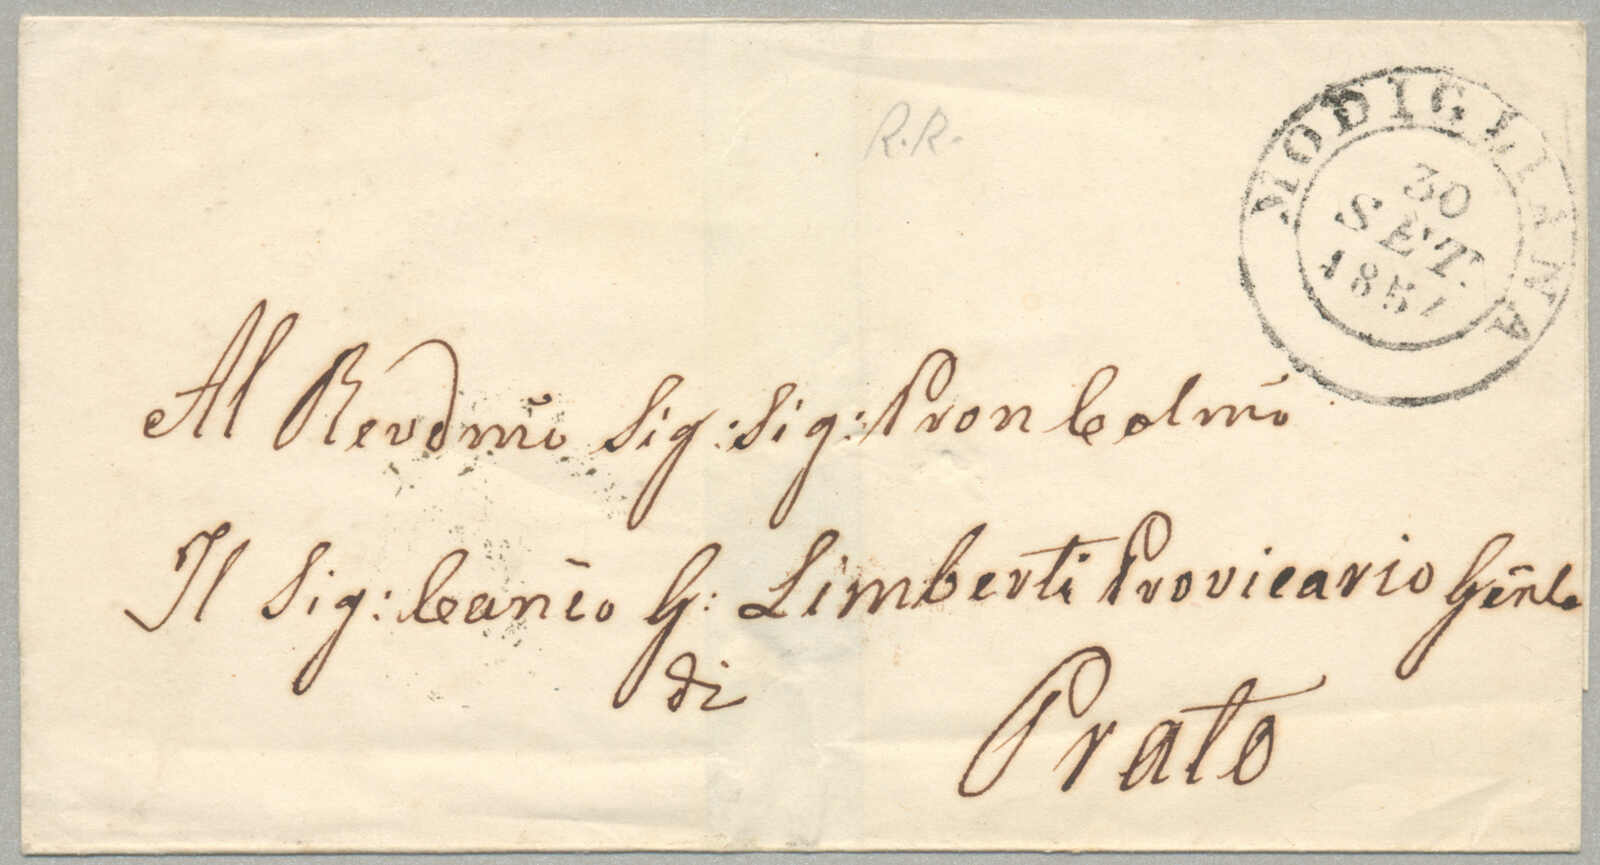 R.R.
MODIGLIANA
30
SET.
1857
Al Revdmo Sig: Sig: Pron Colmo
Il Sig: Canco G: Limberti Provicario Genle
di
Prato